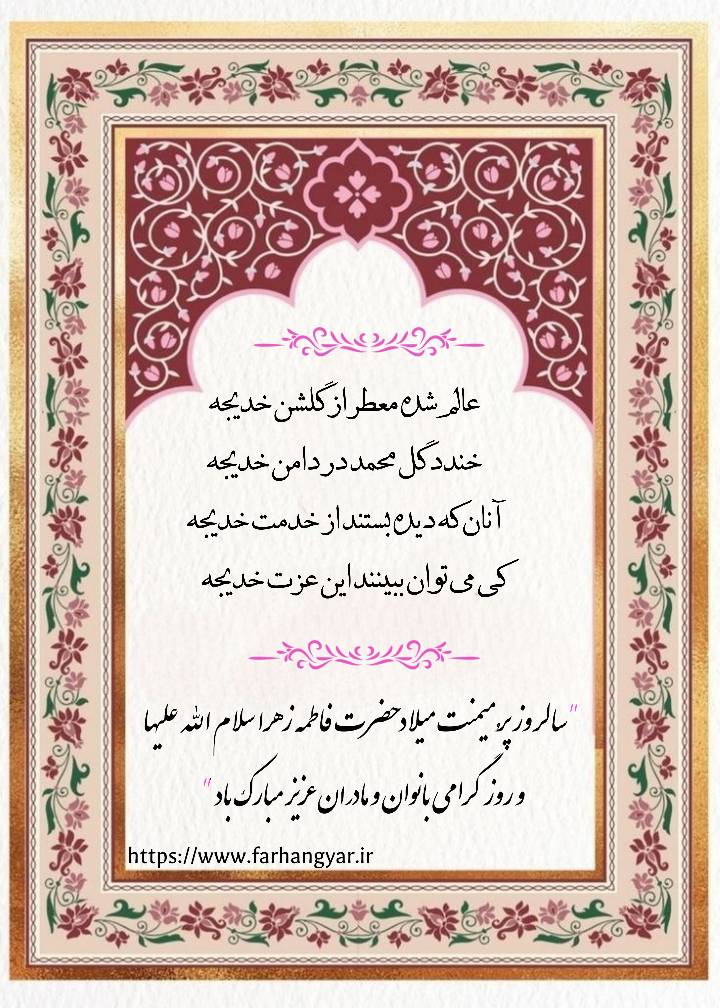 عالم شده معطر از گلشن خدیجه
خندد گل محمد در دامن خدیجه
آنان که دیده بستند از خدمت خدیجه
کی می توان ببینند این عزت خدیجه
"سالروز پر میمنت میلاد حضرت فاطمه زهرا سلام الله علیها
و روز گرامی بانوان و مادران عزیز مبارک باد"
https://www.farhangyar.ir